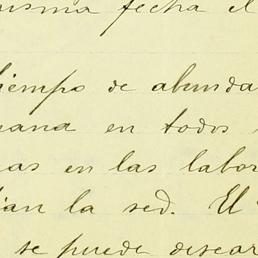 misma fecha el
tiempo de abunda
mana en todos
as en las labor
ian la sed. El
se puede desear